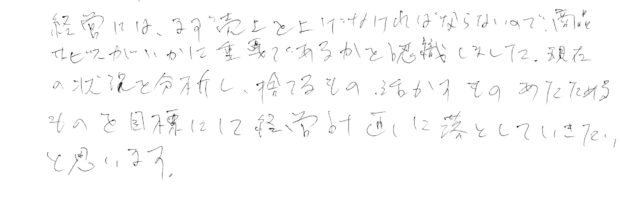 経営には、まず売上を上げなければならないので、商品
サービスがいかに重要であるかと認識しました。現在
の状況を分析し、捨てるもの、活かすもの あたためる
ものを目標にして経営計画に落としていきたい、
と思います。